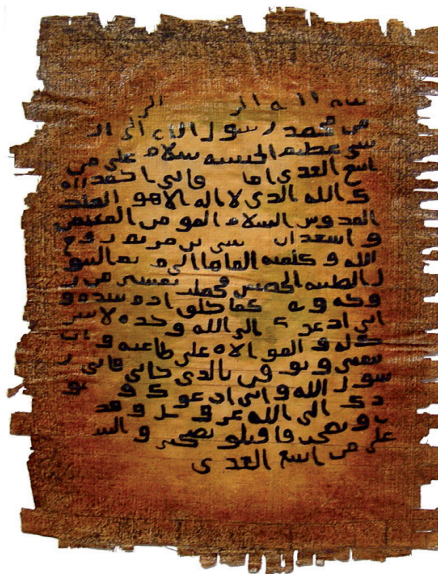 من محمد رسول الله الى
عظيم الحبشة سلام على من
اتبع الهدى اما فانى احمد
الله الذى لا اله الا هو الملك
القدوس السلام المومن المهيمن
و اشهد ان بن مريم روح
الله و كلمته القاها الى مريم البتو
ل الطيبة الحصينة فحملت بعيسى من ر
كما خلق ادم بيده و
انى ادعو ك الى الله و حده لا شر
يك له و الموالاه على طاعته و ان
تتبعنى و توقن بالذى جانى فانى ر
سول الله و انى ادعو ك و
الى الله عز و جل و قد
و نصحت فاقبلو نصيحتى و السلا
على من اتبع الهدى